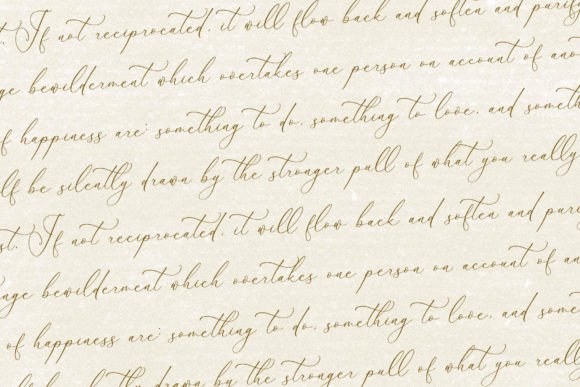 t. If not reciprocated, it will flow back and soften and purif
ge bewilderment which overtakes one person on account of ano
f happiness are: something to do, something to love, and someth
lf be silently drawn by the stronger pull of what you really
st. If not reciprocated, it will flow back and soften and puri
nge bewilderment which overtakes one person on account of an
of happiness are: something to do, something to love, and some
lf be silently drawn by the stronger pull of what you really